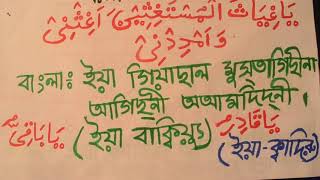 يَا غِيَاثَ الْمُسْتَغِيْثِيْنَ اَغِثْنِىْ
وَامْدِدْنِىْ
বাংলা: ইয়া গিয়াছাল মুসতাগিছীনা
আগিছনী অআমদিদনী।
يَا بَاقِىُّ (ইয়া বাক্বিয়ু) يَا قَادِرُ (ইয়া-ক্বাদিরু)